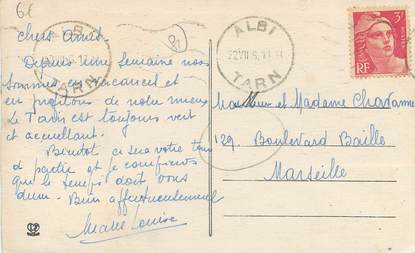 68
Chers Amis
Depuis une semaine nous
sommes en vacances et
en profitons de notre mieux
Le Tarn est toujours vert
et accueillant.
Bientôt ce sera votre tour
de partir et je comprends
que le temps doit vous
durer. Bien affectueusement
Marie Louise
ALBI
TARN
ALBI
TARN
3F
POSTES
RF
Monsieur et Madame Chavanne
129. Boulevard Baille
Marseille